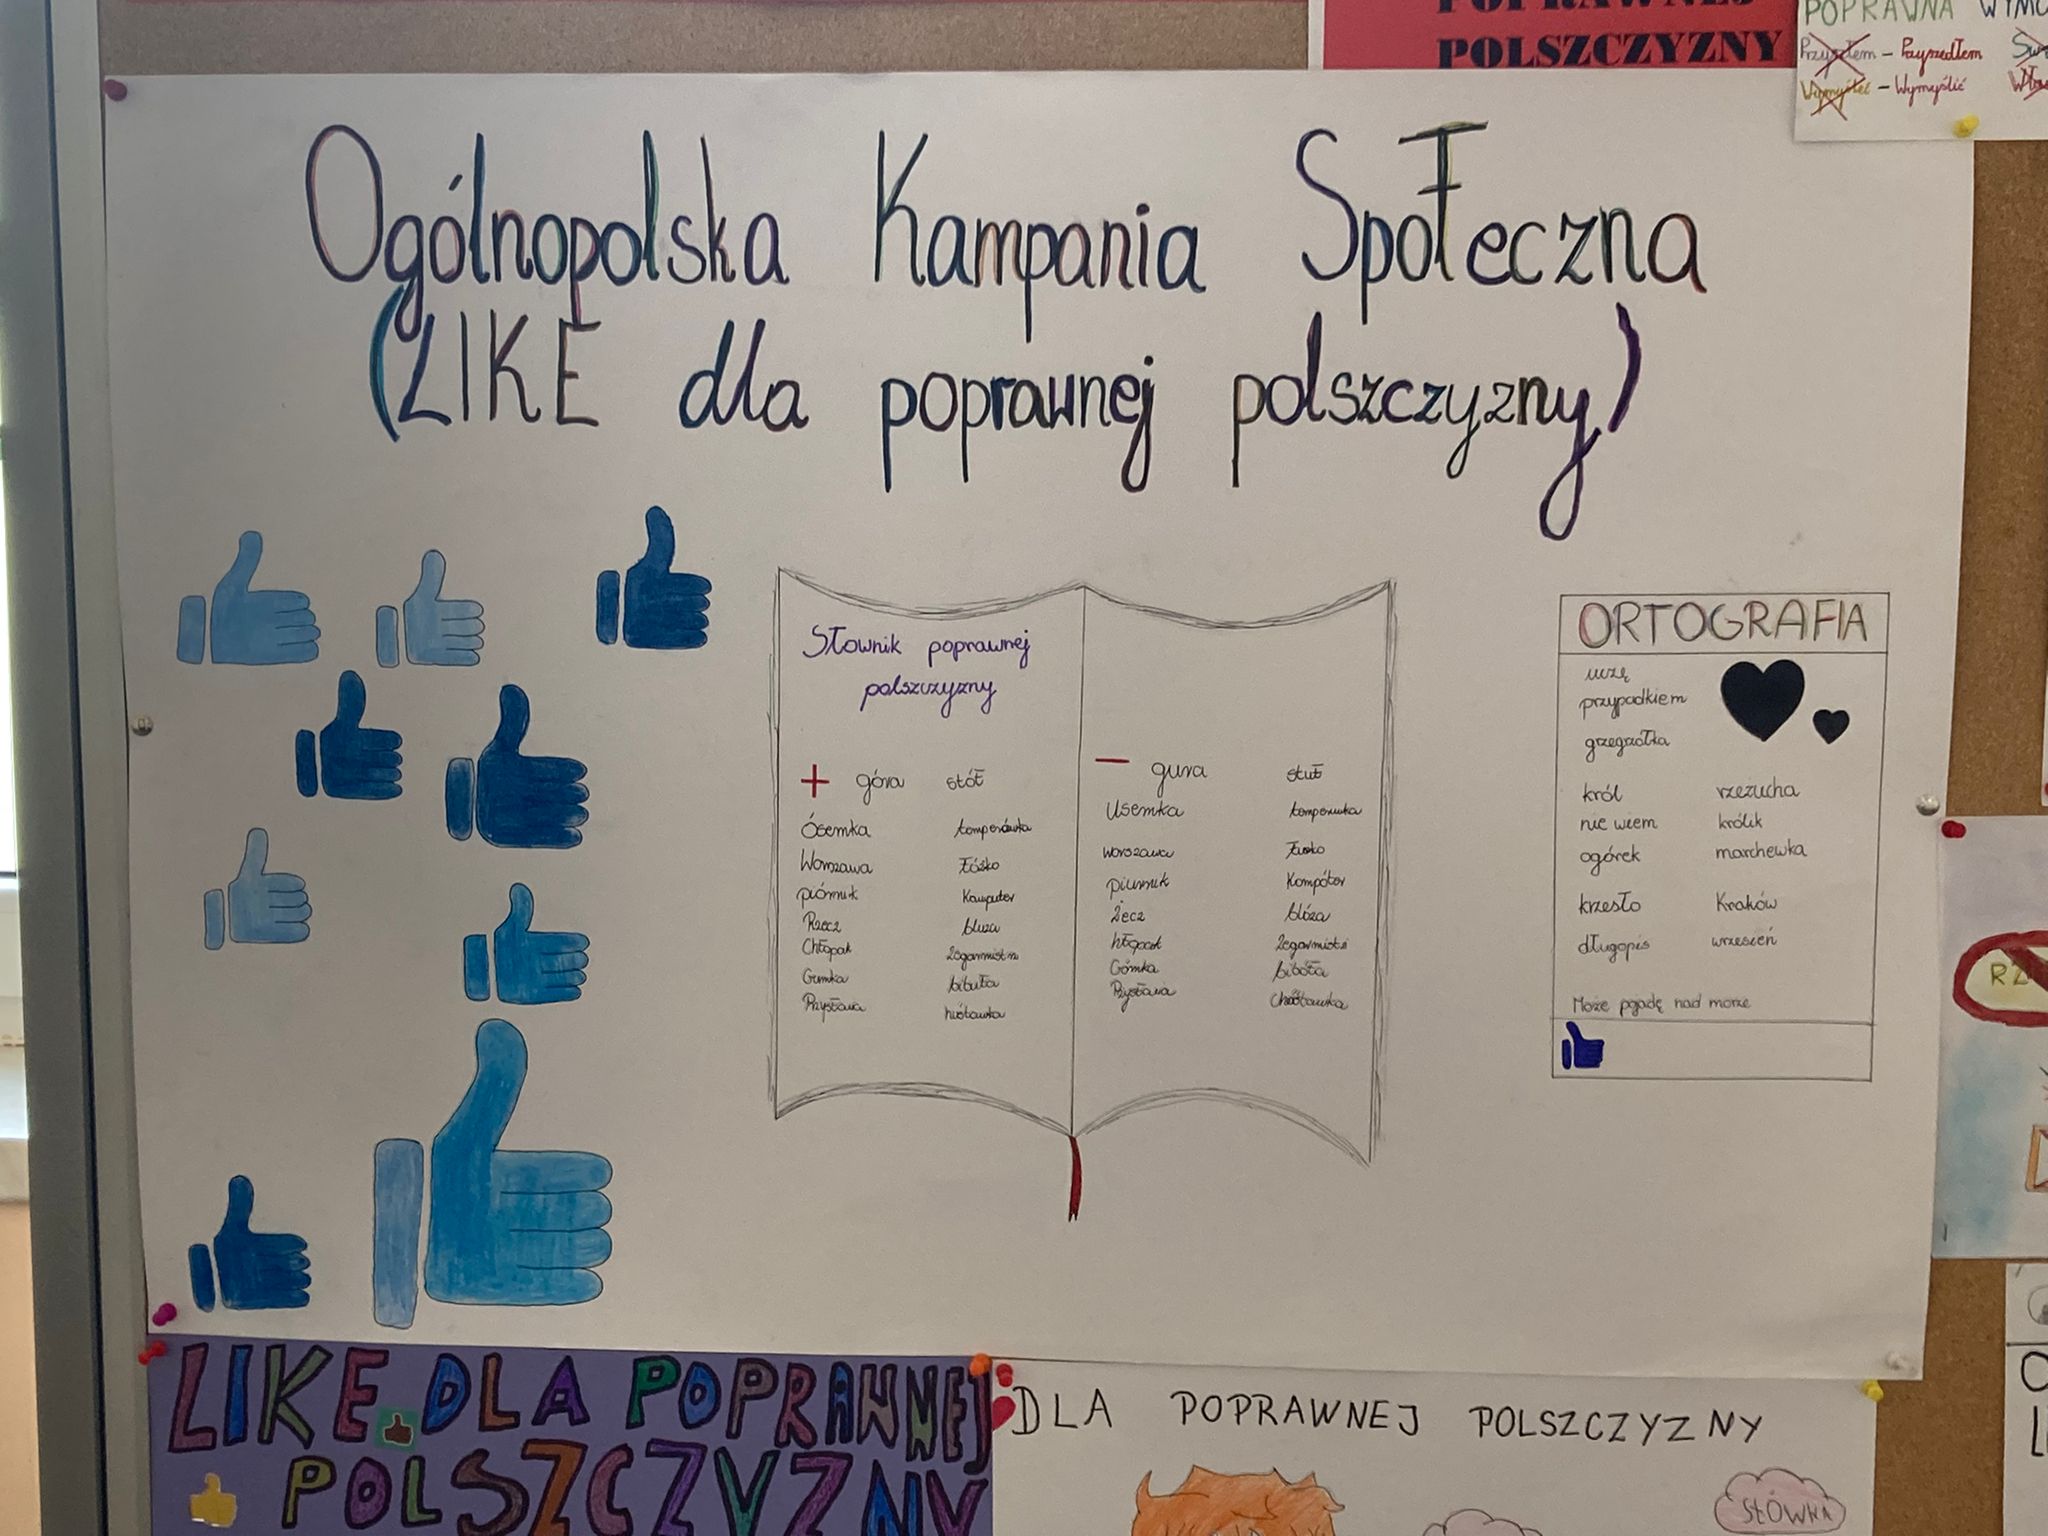 POPRAWNEJ
POLSZCZYZNY
POPRAWNA
Przyszłem – Przyszedłem
– Wymyślić
Ogólnopolska Kampania Społeczna
(LIKE dla poprawnej polszczyzny)
Słownik poprawnej
polszczyzny
+ góra stół
Ósemka temperówka
Warszawa łóżko
piórnik Komputer
Rzecz bluza
Chłopak zegarmistrz
Gumka bibuła
Przystawa huśtawka
– gura stuł
Usemka temperuwka
warszawa łusko
piurnik Kompóter
Żecz blóza
hłopak
Gómka bibóła
Pzystawa
ORTOGRAFIA
przypadkiem
grzegrzółka
król rzeżucha
nie wiem królik
ogórek marchewka
krzesło Kraków
długopis wrzesień
Może pojadę nad morze
RZ
LIKE DLA POPRAWNEJ
POLSZCZYZNY
DLA POPRAWNEJ POLSZCZYZNY
SŁÓWKA